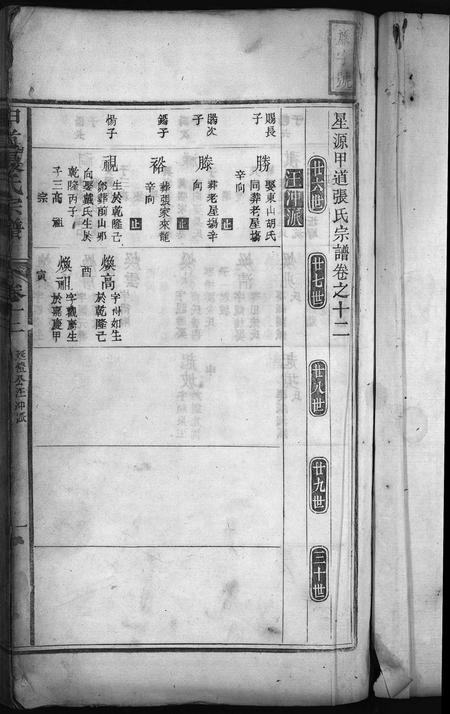 星源甲道張氏宗譜卷之十二
廿六世
廿七世
廿八世
廿九世
三十世
汪沖派
賜長子
勝
娶東山胡氏
同葬老屋塲
辛向
止
賜次子
滕
葬老屋塲辛
向
止
錫子
裕
葬張家來龍
辛向
止
楊子
視
生於乾隆己
卯葬前山卯
向娶戴氏生於
乾隆丙子
子三高 祖
宗
煥高
字州如生
於乾隆己
酉
煥祖
字觀慶生
於嘉慶甲
寅
甲道張氏宗譜
卷十二
汪沖派
一